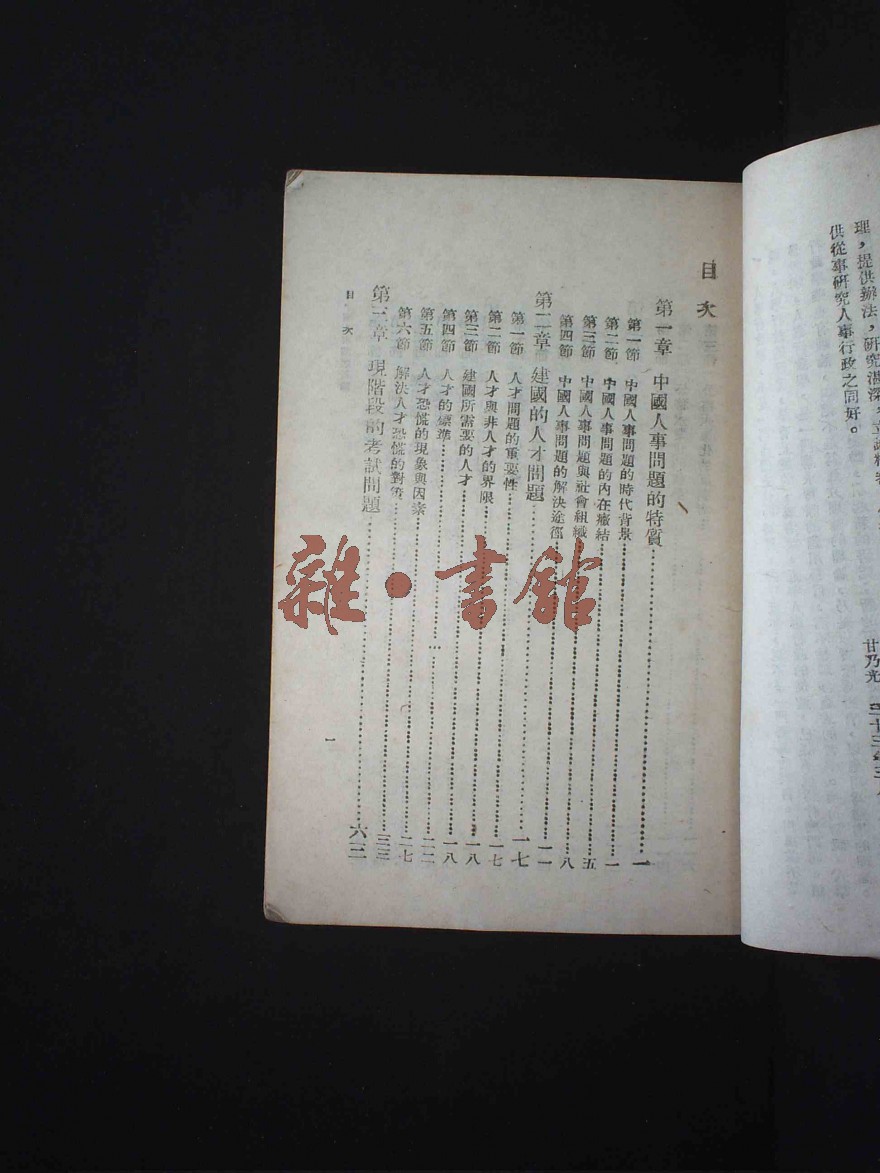 理，提供辦法，研究湛深，立論精
供從事研究人事行政之同好。
甘乃光
目次
第一章 中國人事問題的特質……一
第一節 中國人事問題的時代背景……一
第二節 中國人事問題的內在癥結……五
第三節 中國人事問題與社會組織……八
第四節 中國人事問題的解決途徑……一一
第二章 建國的人才問題……一七
第一節 人才問題的重要性……一七
第二節 人才與非人才的界限……一八
第三節 建國所需要的人才……一八
第四節 人才的標準……二二
第五節 人才恐慌的現象與因素……二七
第六節 解決人才恐慌的對策……三三
第三章 現階段的考試問題……六二
目次
一
雜·書館